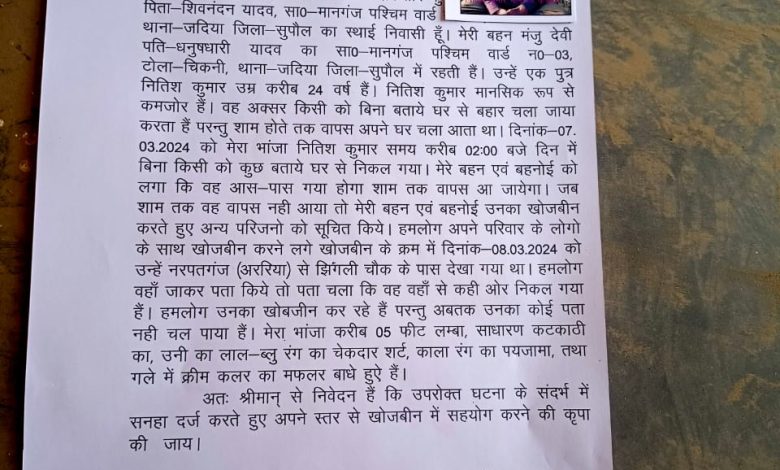 पिता–शिवनंदन यादव, सा0–मानगंज पश्चिम वार्ड
थाना–जदिया जिला–सुपौल का स्थाई निवासी हूँ। मेरी बहन मंजु देवी
पति–धनुषधारी यादव का सा0–मानगंज पश्चिम वार्ड न0–03,
टोला–चिकनी, थाना–जदिया जिला–सुपौल में रहती हैं। उन्हें एक पुत्र
नितिश कुमार उम्र करीब 24 वर्ष हैं। नितिश कुमार मानसिक रूप से
कमजोर हैं। वह अक्सर किसी को बिना बताये घर से बहार चला जाया
करता हैं परन्तु शाम होते तक वापस अपने घर चला आता था। दिनांक–07.
03.2024 को मेरा भांजा नितिश कुमार समय करीब 02:00 बजे दिन में
बिना किसी को कुछ बताये घर से निकल गया। मेरे बहन एवं बहनोई को
लगा कि वह आस–पास गया होगा शाम तक वापस आ जायेगा। जब
शाम तक वह वापस नही आया तो मेरी बहन एवं बहनोई उनका खोजबीन
करते हुए अन्य परिजनो को सूचित किये। हमलोग अपने परिवार के लोगो
के साथ खोजबीन करने लगे खोजबीन के क्रम में दिनांक–08.03.2024 को
उन्हें नरपतगंज (अररिया) से झिंगली चौक के पास देखा गया था। हमलोग
वहाँ जाकर पता किये तो पता चला कि वह वहाँ से कही ओर निकल गया
हैं। हमलोग उनका खोबजीन कर रहे हैं परन्तु अबतक उनका कोई पता
नही चल पाया हैं। मेरा भांजा करीब 05 फीट लम्बा, साधारण कटकाठी
का, उनी का लाल–ब्लु रंग का चेकदार शर्ट, काला रंग का पयजामा, तथा
गले में क्रीम कलर का मफलर बाधे हुऐ हैं।
अतः श्रीमान् से निवेदन हैं कि उपरोक्त घटना के संदर्भ में
सनहा दर्ज करते हुए अपने स्तर से खोजबीन में सहयोग करने की कृपा
की जाय।